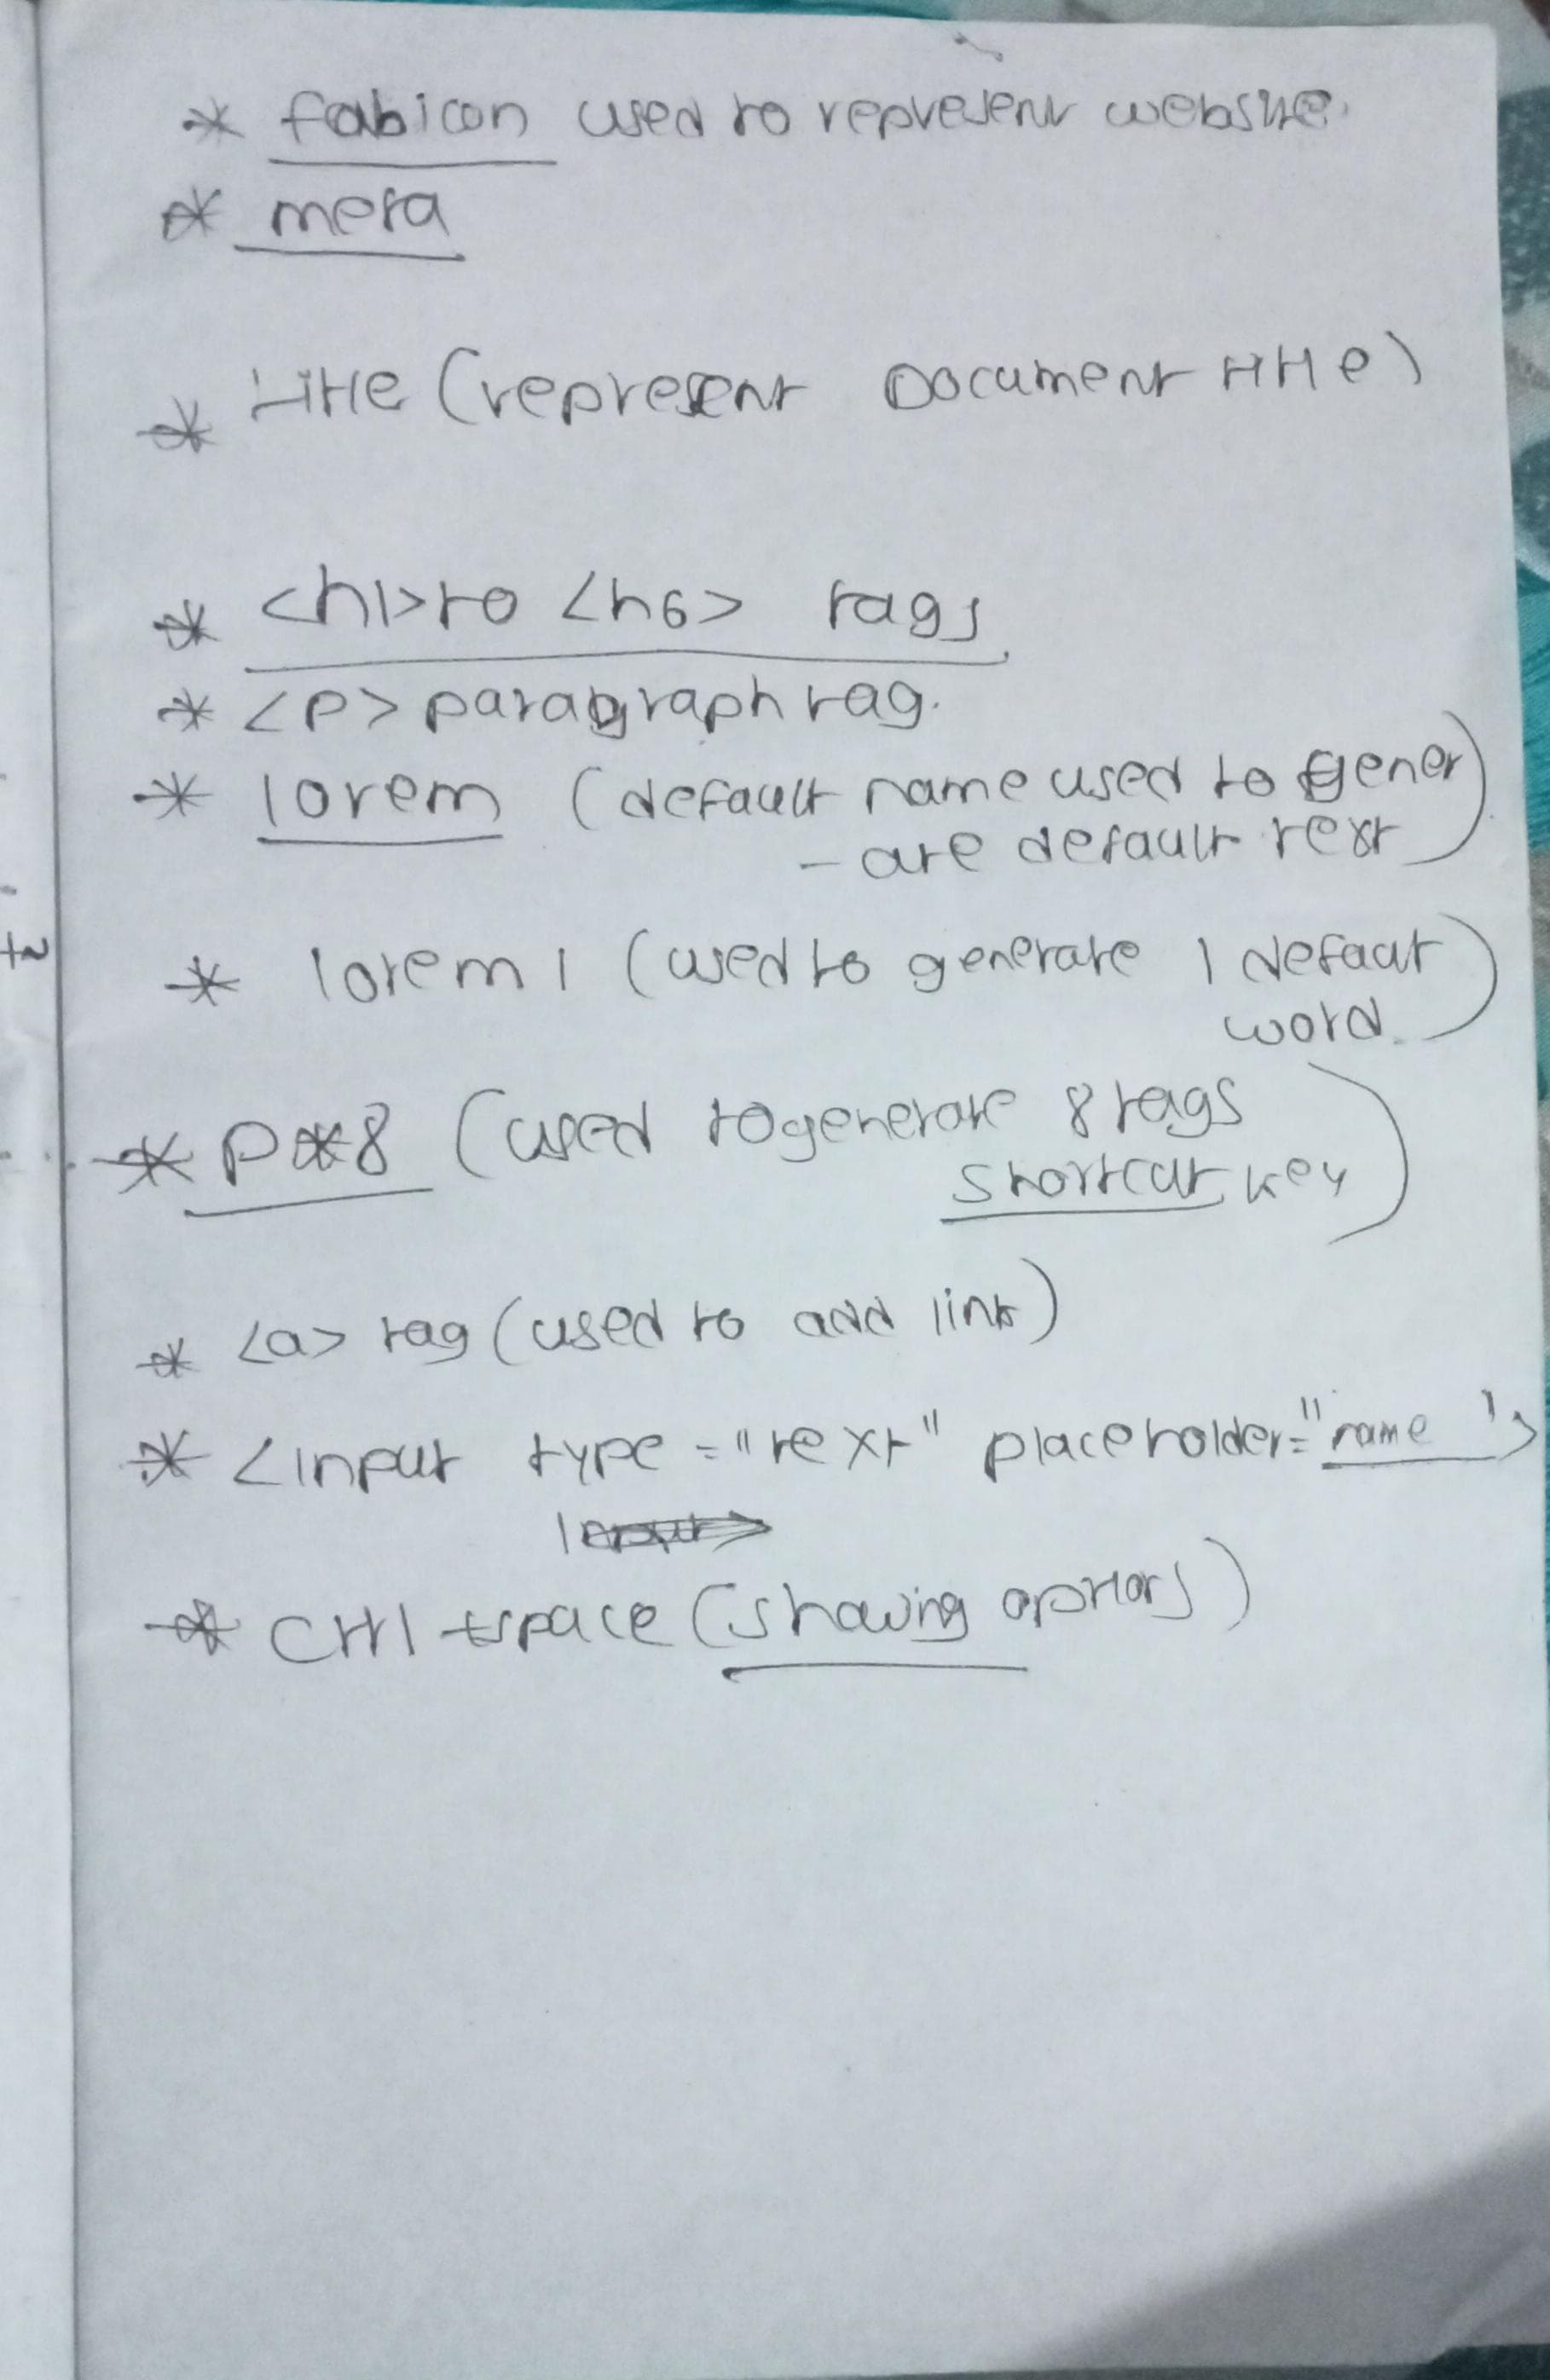 * fabicon used to represent website.
* meta
* title (represent Document title)
* <h1> to <h6> tags
* <p> paragraph tag.
* lorem (default name used to gener
- ate default text)
* lorem 1 (used to generate 1 defaut
word.)
* p*8 (used to generate 8 tags
shortcut key)
* <a> tag (used to add link)
* <input type="text" placeholder="name">
* Ctrl+space (showing options)